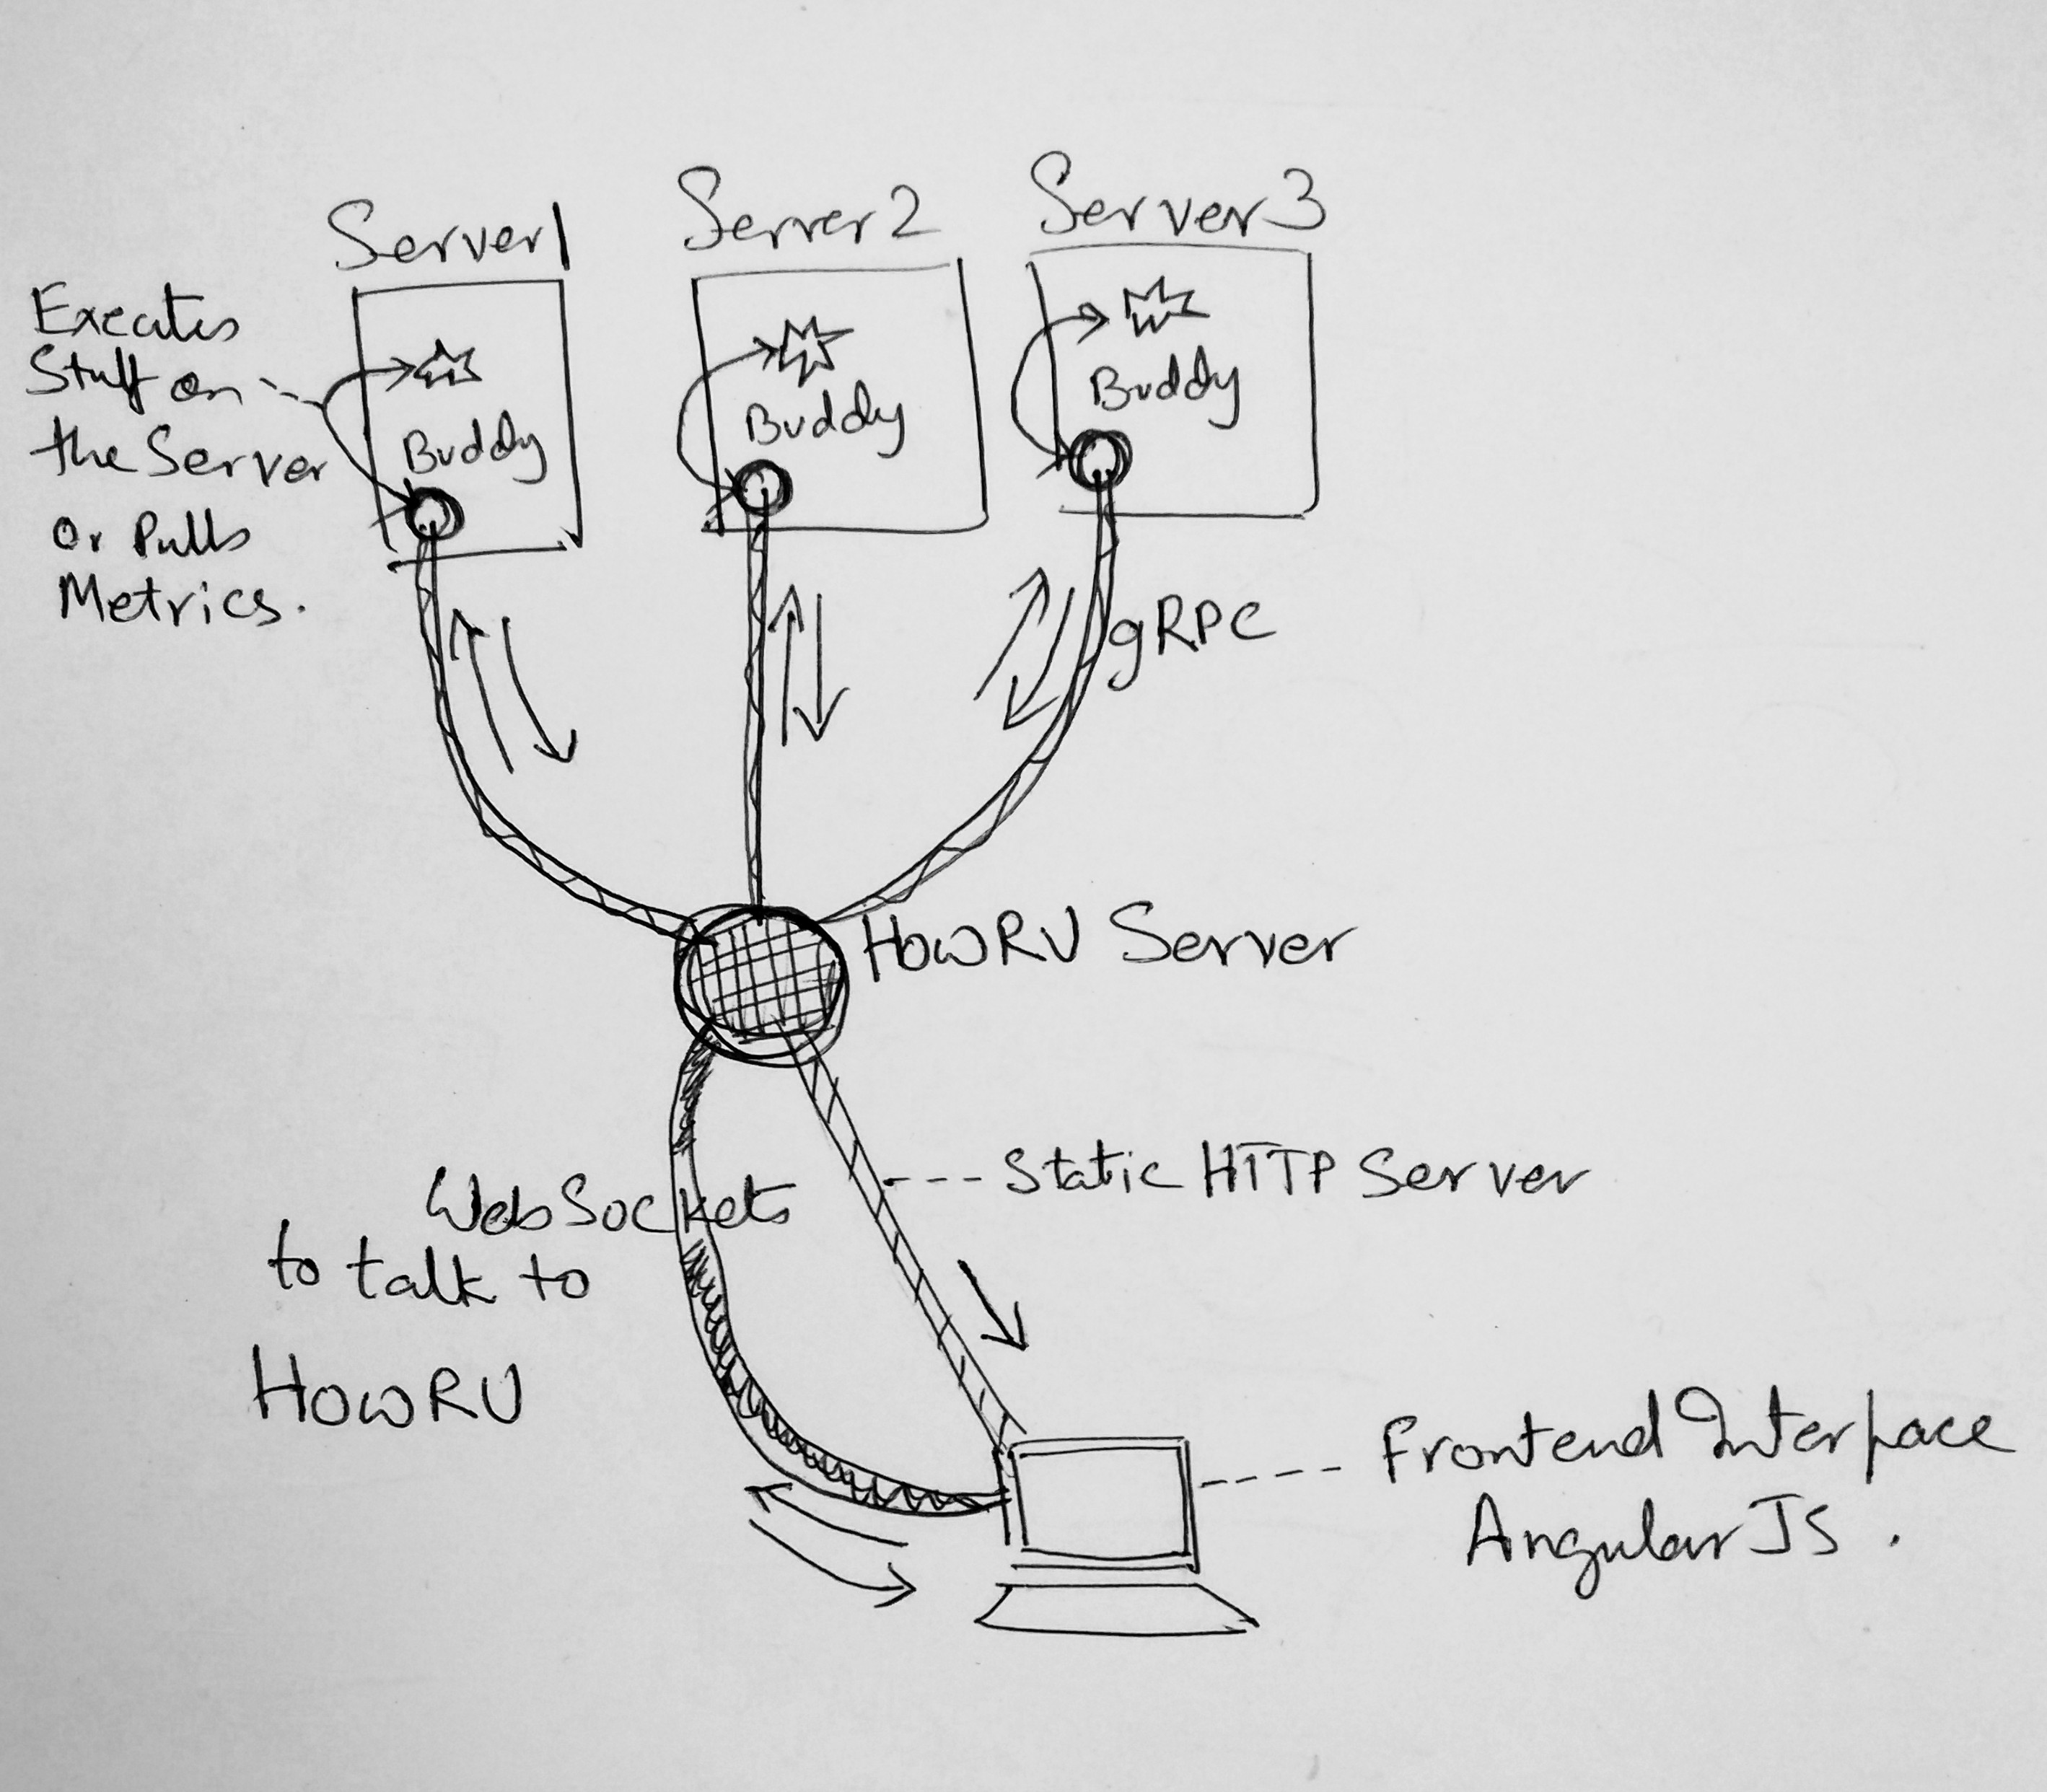 Server1
Server2
Server3
Executes
Stuff on
the Server
Or Pulls
Metrics.
Buddy
Buddy
Buddy
gRPC
HowRU Server
Static HTTP Server
WebSockets
to talk to
HowRU
Frontend Interface
Angular JS.